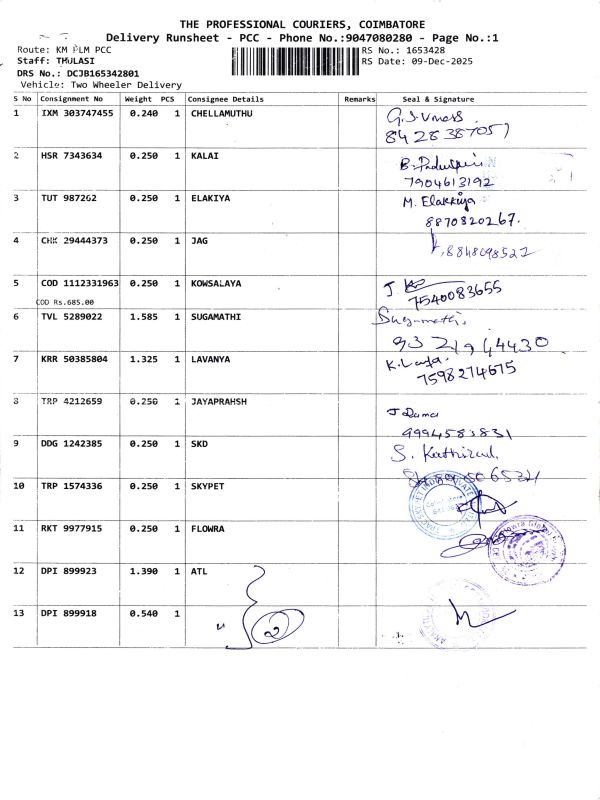 THE PROFESSIONAL COURIERS, COIMBATORE
Delivery Runsheet - PCC - Phone No.:9047080280 - Page No.:1
Route: KM PLM PCC
RS No.: 1653428
Staff: THULASI
RS Date: 09-Dec-2025
DRS No.: DCJB165342801
Vehicle: Two Wheeler Delivery
S No Consignment No Weight PCS Consignee Details Remarks Seal & Signature
1 IXM 303747455 0.240 1 CHELLAMUTHU
8428387057
2 HSR 7343634 0.250 1 KALAI
7904613192
3 TUT 987262 0.250 1 ELAKIYA M. Elakkiya
8870820267.
4 CHK 29444373 0.250 1 JAG
5 COD 1112331963 0.250 1 KOWSALAYA
7540083655
COD Rs.685.00
6 TVL 5289022 1.585 1 SUGAMATHI Sugamathi.
93 21944430
7 KRR 50385804 1.325 1 LAVANYA
7598274675
8 TRP 4212659 0.250 1 JAYAPRAHSH
9994583831
9 DDG 1242385 0.250 1 SKD
10 TRP 1574336 0.250 1 SKYPET
11 RKT 9977915 0.250 1 FLOWRA
12 DPI 899923 1.390 1 ATL
13 DPI 899918 0.540 1